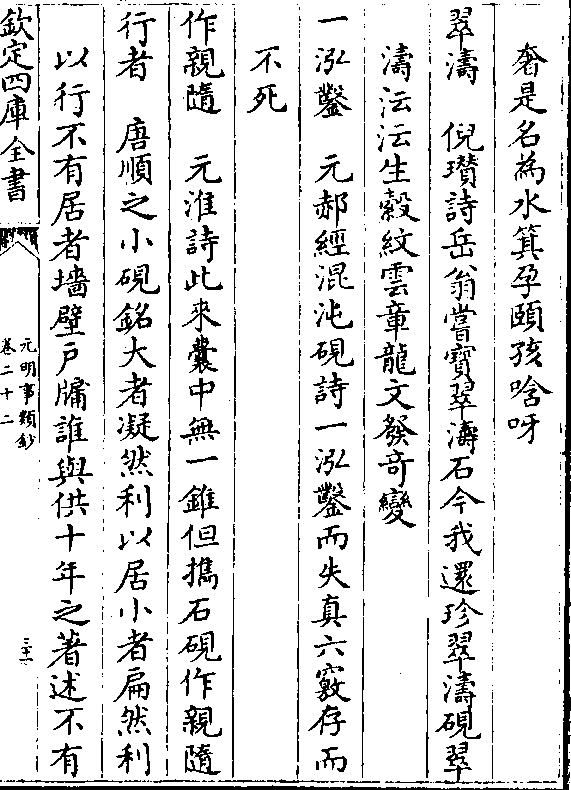 奢是名為水箕孕頤孩唅呀
翠濤　倪瓚詩岳翁嘗寶翠濤石今我還珍翠濤硯翠
濤沄沄生縠紋雲章龍文發奇變
一泓鑿　元郝經混沌硯詩一泓鑿而失真六竅存而
不死
作親隨　元淮詩此來囊中無一錐但攜石硯作親隨
行者　唐順之小硯銘大者凝然利以居小者扁然利
以行不有居者墻壁戶牖誰與供十年之著述不有
欽定四庫全書
元明事類鈔
卷二十二
三十一